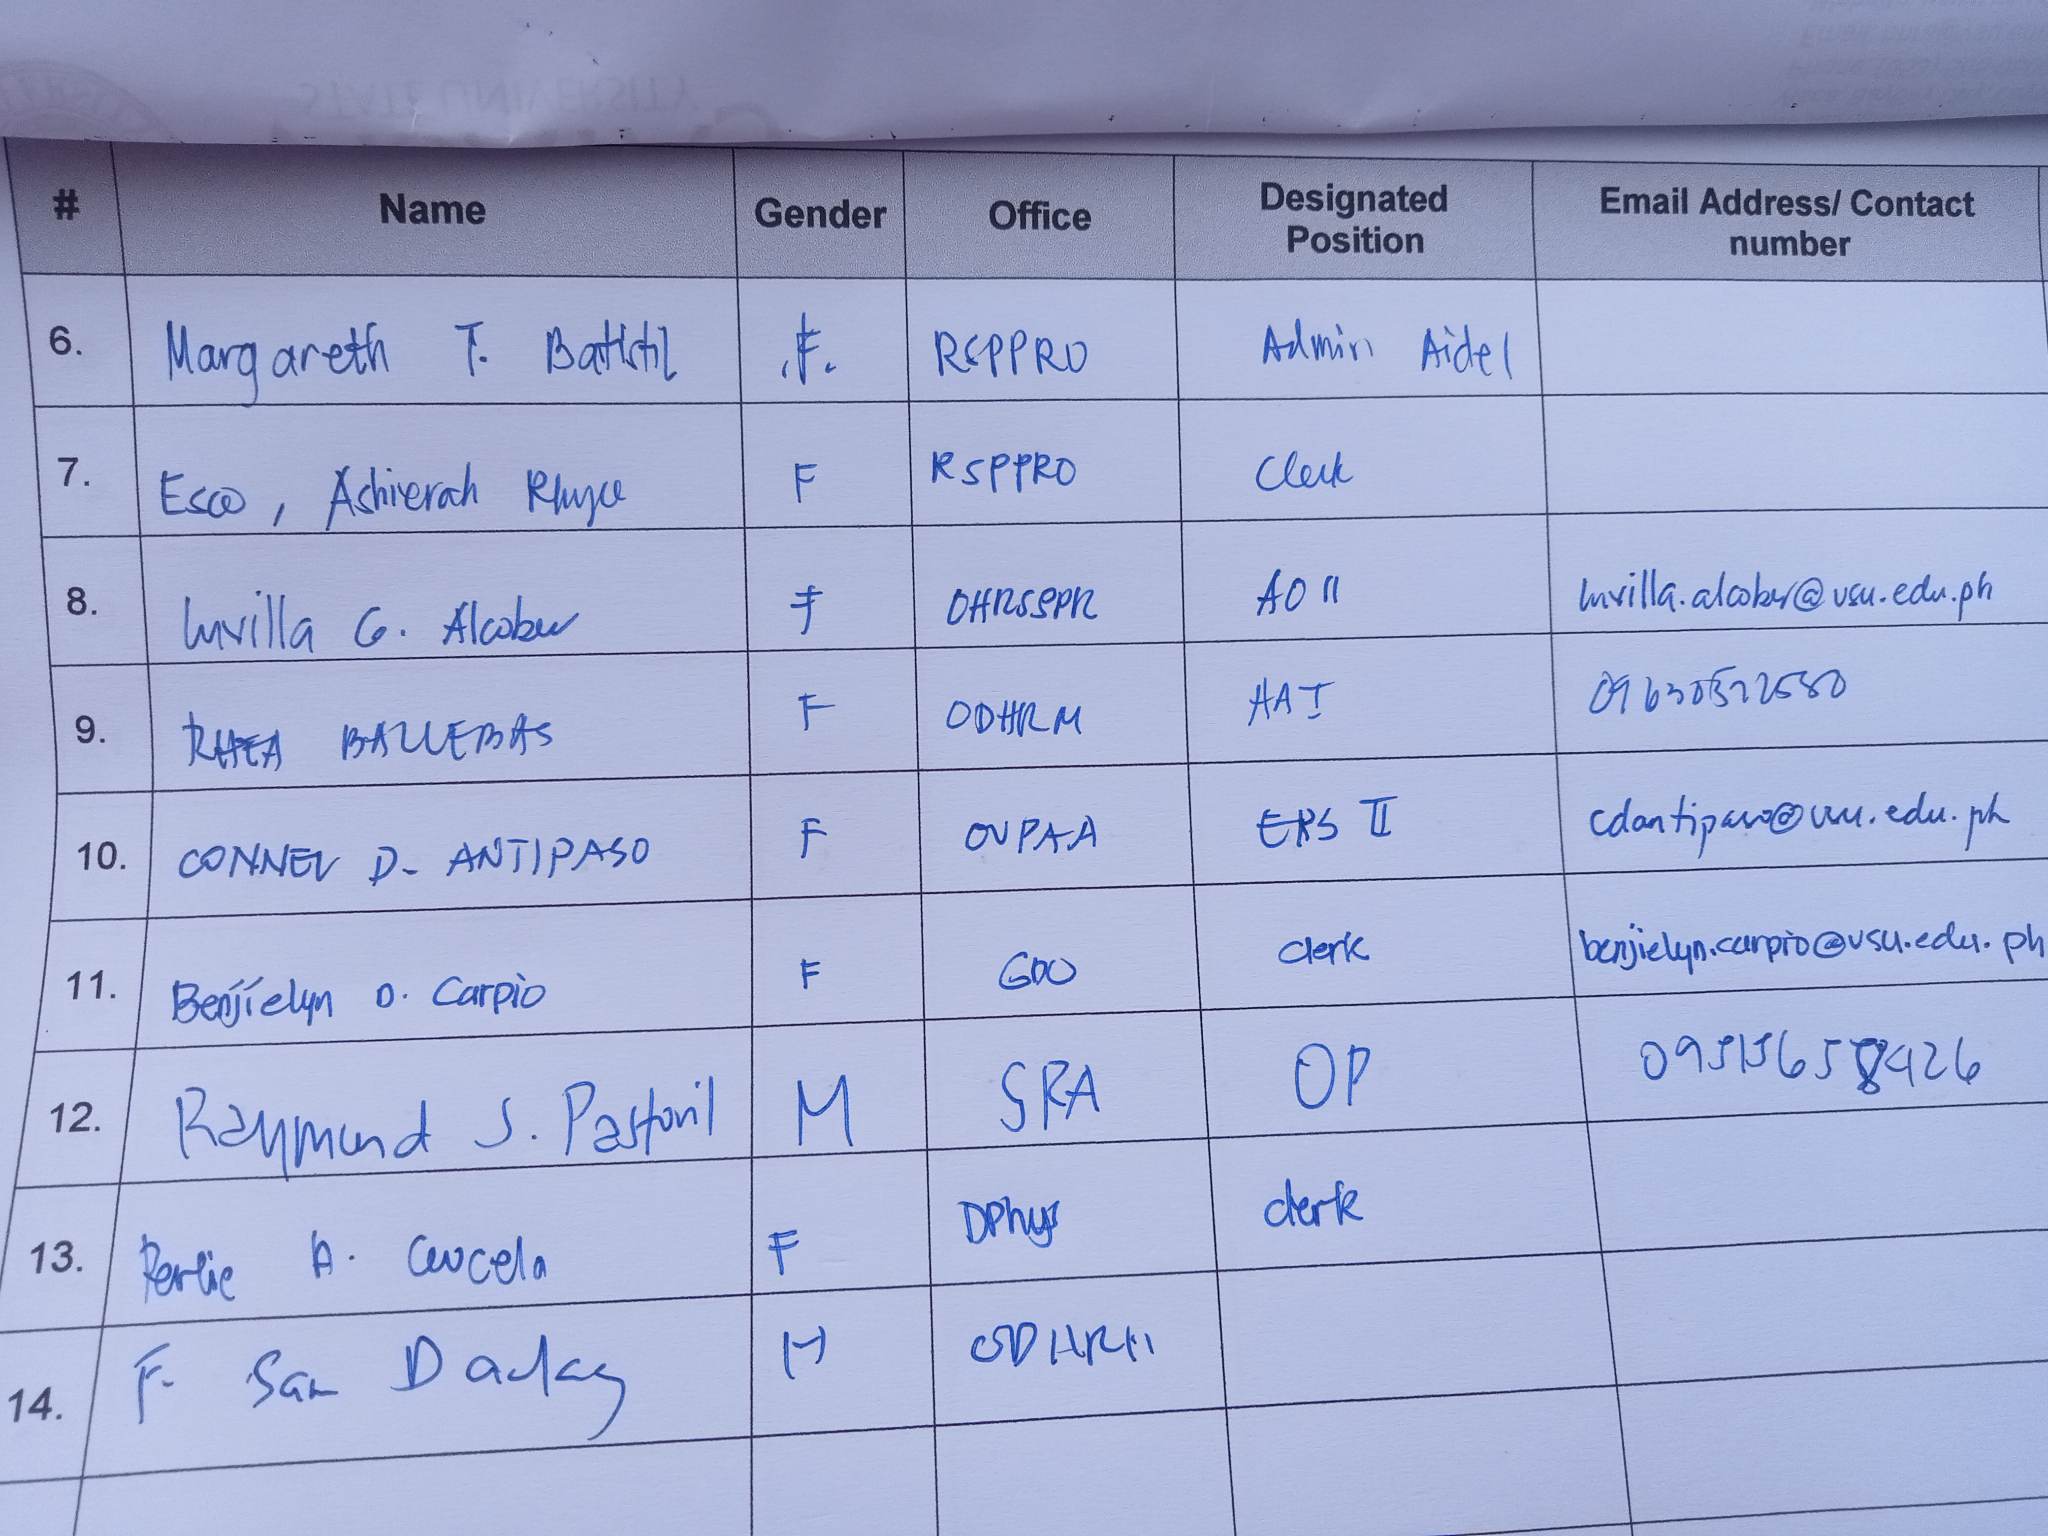 STATE UNIVERSITY
# Name Gender Office Designated Position Email Address/ Contact number
6. Margareth T. Batistil F. RSPPRO Admin Aide 1
7. Esco, Ashierah Rhyce F RSPPRO Clerk
8. Luvilla G. Alcober F OHRSSPR AO II luvilla.alcober@vsu.edu.ph
9. RHEA BALLEBAS F ODHRM AA I
10. CONNEV D. ANTIPASO F OVPAA ERS II cdantipaso@vsu.edu.ph
11. Benjielyn O. Carpio F GDO clerk benjielyn.carpio@vsu.edu.ph
12. Raymund S. Pastoril M SRA OP
13. Perlie A. F DPhys clerk
14. F. San M ODHRM